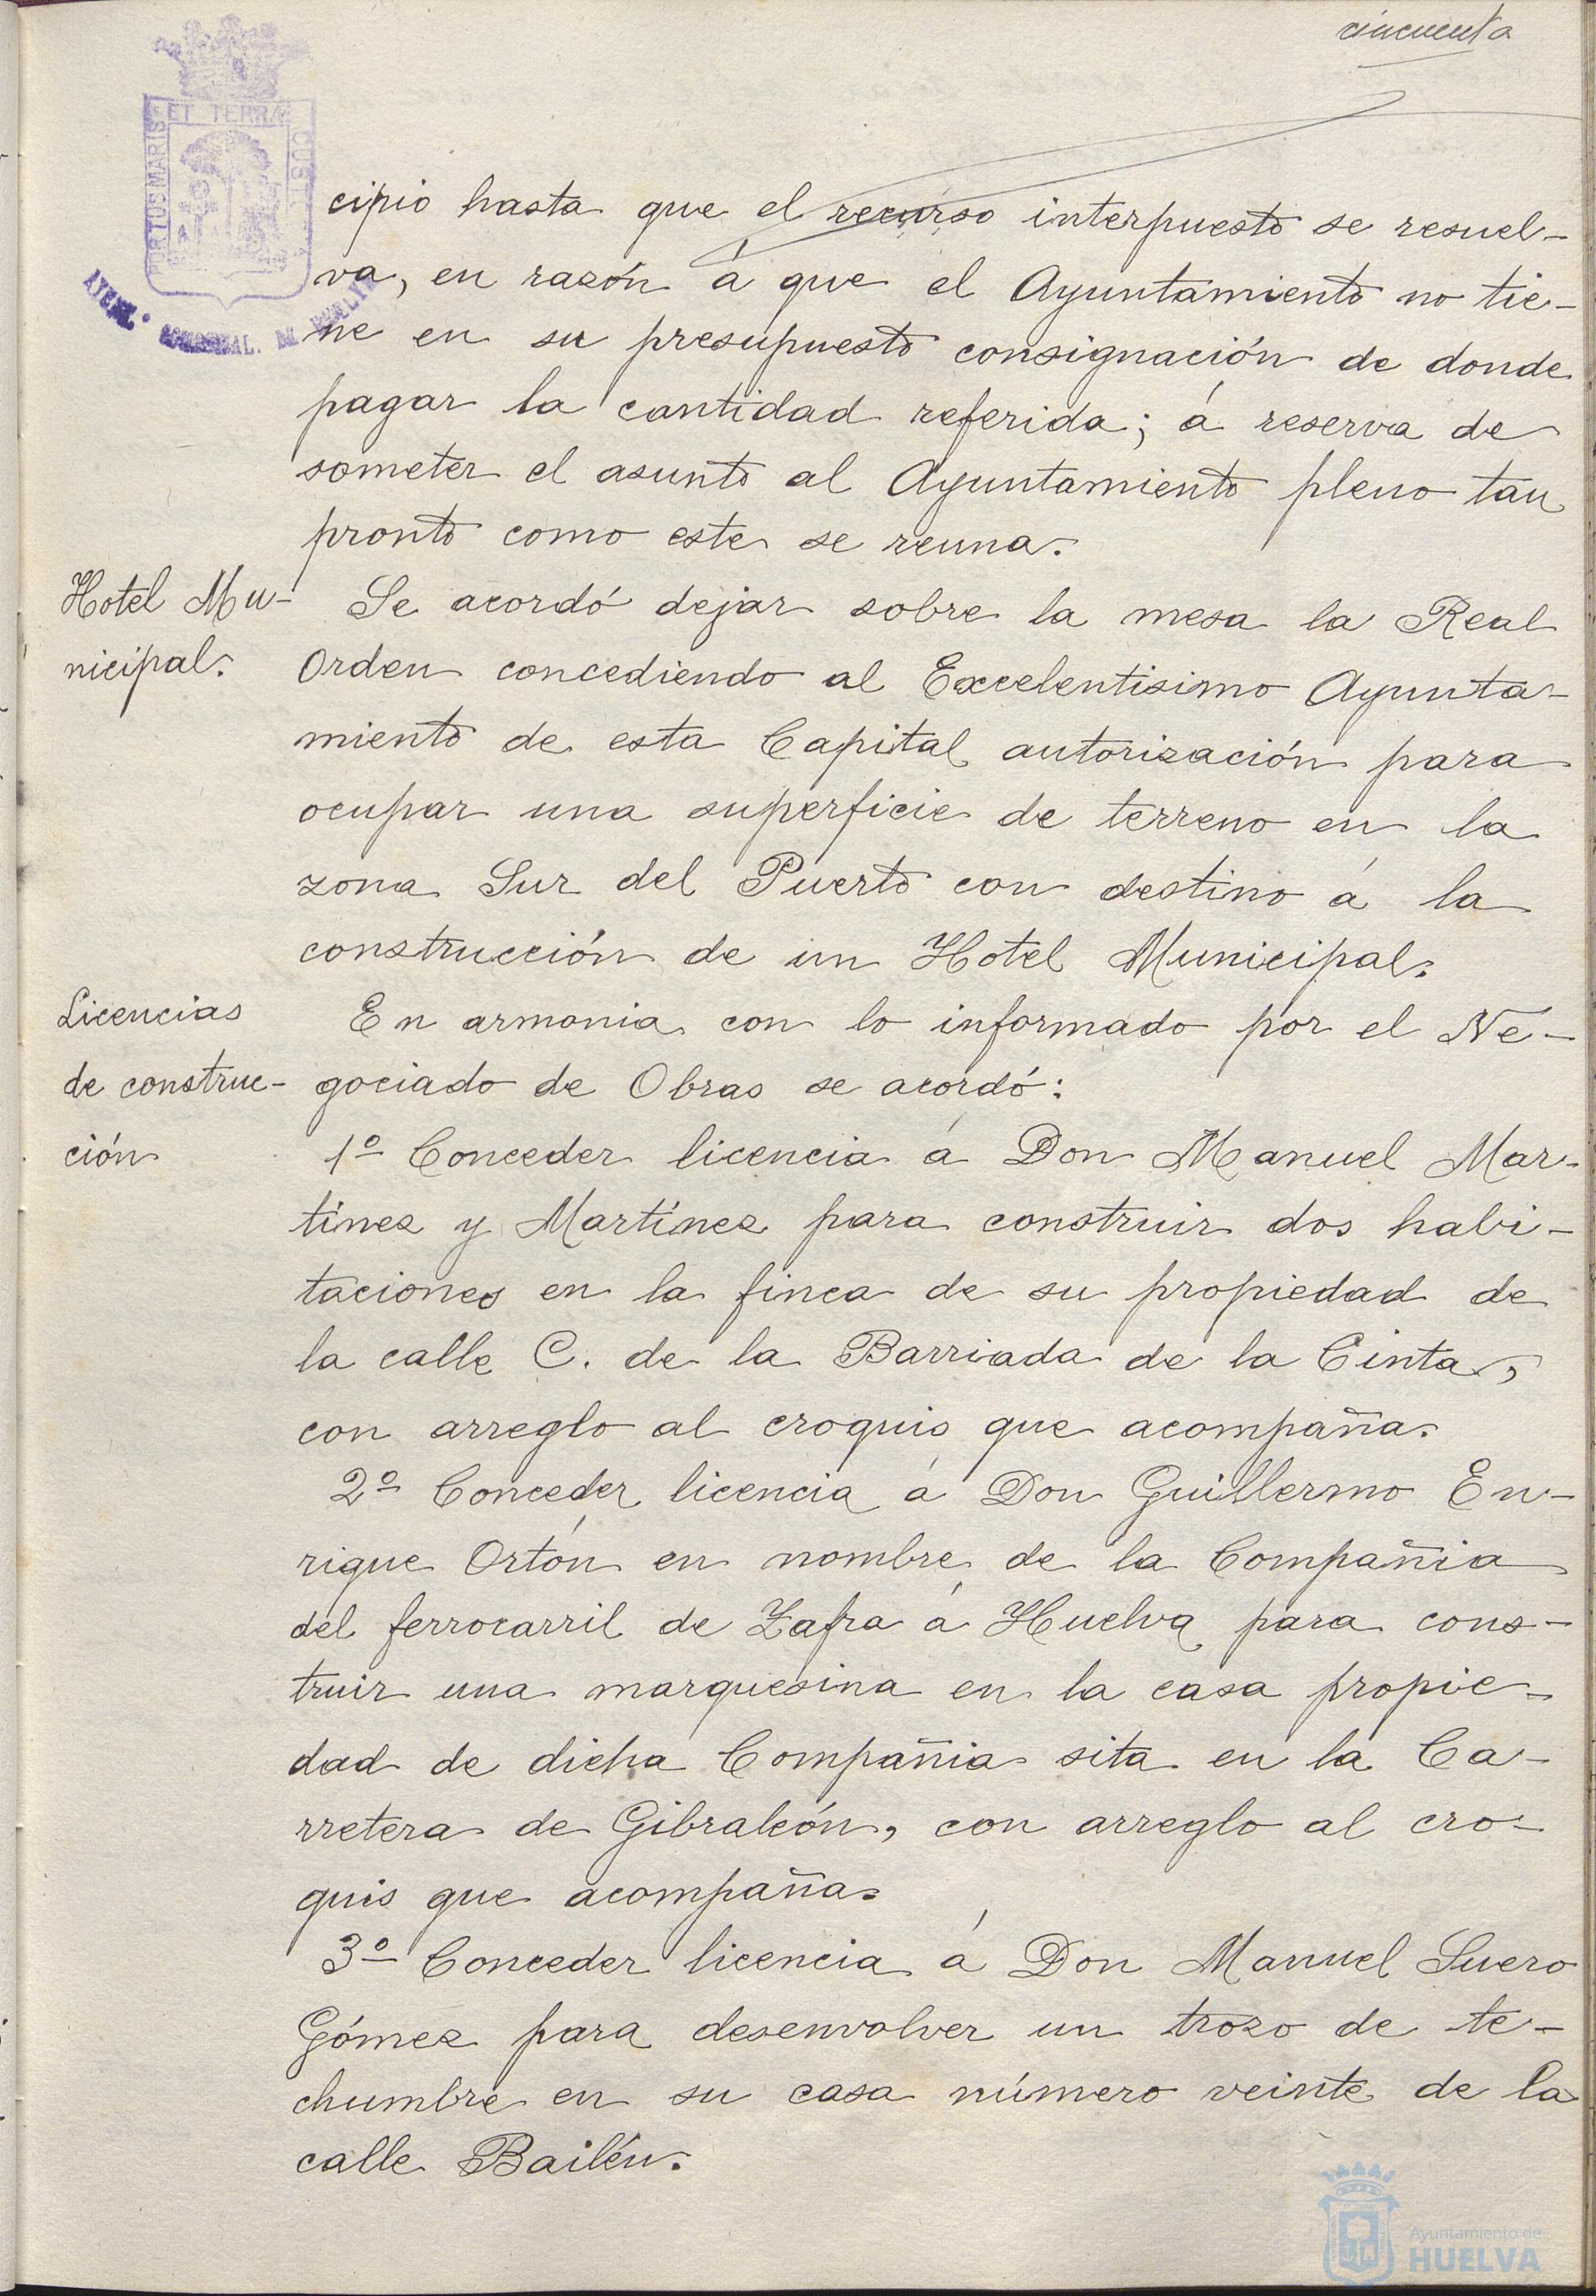 cincuenta
PORTUS MARIS ET TERRÆ CUST
AYUNT. HUELVA
cipio hasta que el recurso interpuesto se resuel-
va, en razón á que el Ayuntamiento no tie-
ne en su presupuesto consignación de donde
pagar la cantidad referida; á reserva de
someter el asunto al Ayuntamiento pleno tan
pronto como este se reuna.
Hotel Mu-
nicipal.
Se acordó dejar sobre la mesa la Real
Orden concediendo al Excelentisimo Ayunta-
miento de esta Capital autorización para
ocupar una superficie de terreno en la
zona Sur del Puerto con destino á la
construcción de un Hotel Municipal.
Licencias
de construc-
ción
En armonia con lo informado por el Ne-
gociado de Obras se acordó:
1º Conceder licencia á Don Manuel Mar-
tínez y Martínez para construir dos habi-
taciones en la finca de su propiedad de
la calle C. de la Barriada de la Cinta,
con arreglo al croquis que acompaña.
2º Conceder licencia á Don Guillermo En-
rique Ortón en nombre de la Compañia
del ferrocarril de Zafra á Huelva para cons-
truir una marquesina en la casa propie-
dad de dicha Compañia sita en la Ca-
rretera de Gibraleón, con arreglo al cro-
quis que acompaña.
3º Conceder licencia á Don Manuel Suero
Gómez para desenvolver un trozo de te-
chumbre en su casa número veinte de la
calle Bailén.
Ayuntamiento de
HUELVA